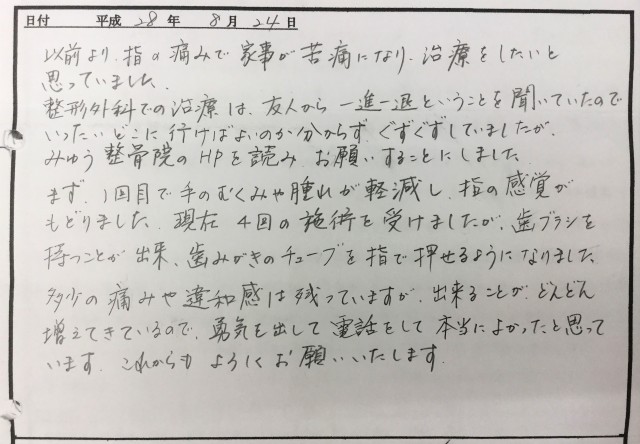 日付 平成 28 年 8 月 24 日
以前より、指の痛みで家事が苦痛になり、治療をしたいと
思っていました。
整形外科での治療は、友人から一進一退ということを聞いていたので
いったいどこに行けばよいのか分からず、ぐずぐずしていましたが、
みゅう整骨院のHPを読み、お願いすることにしました。
まず、1回目で手のむくみや腫れが軽減し、指の感覚が
もどりました。現在4回の施術を受けましたが、歯ブラシを
持つことが出来、歯みがきのチューブを指で押せるようになりました。
多少の痛みや違和感は残っていますが、出来ることが、どんどん
増えてきているので、勇気を出して電話をして本当によかったと思って
います。これからもよろしくお願いいたします。